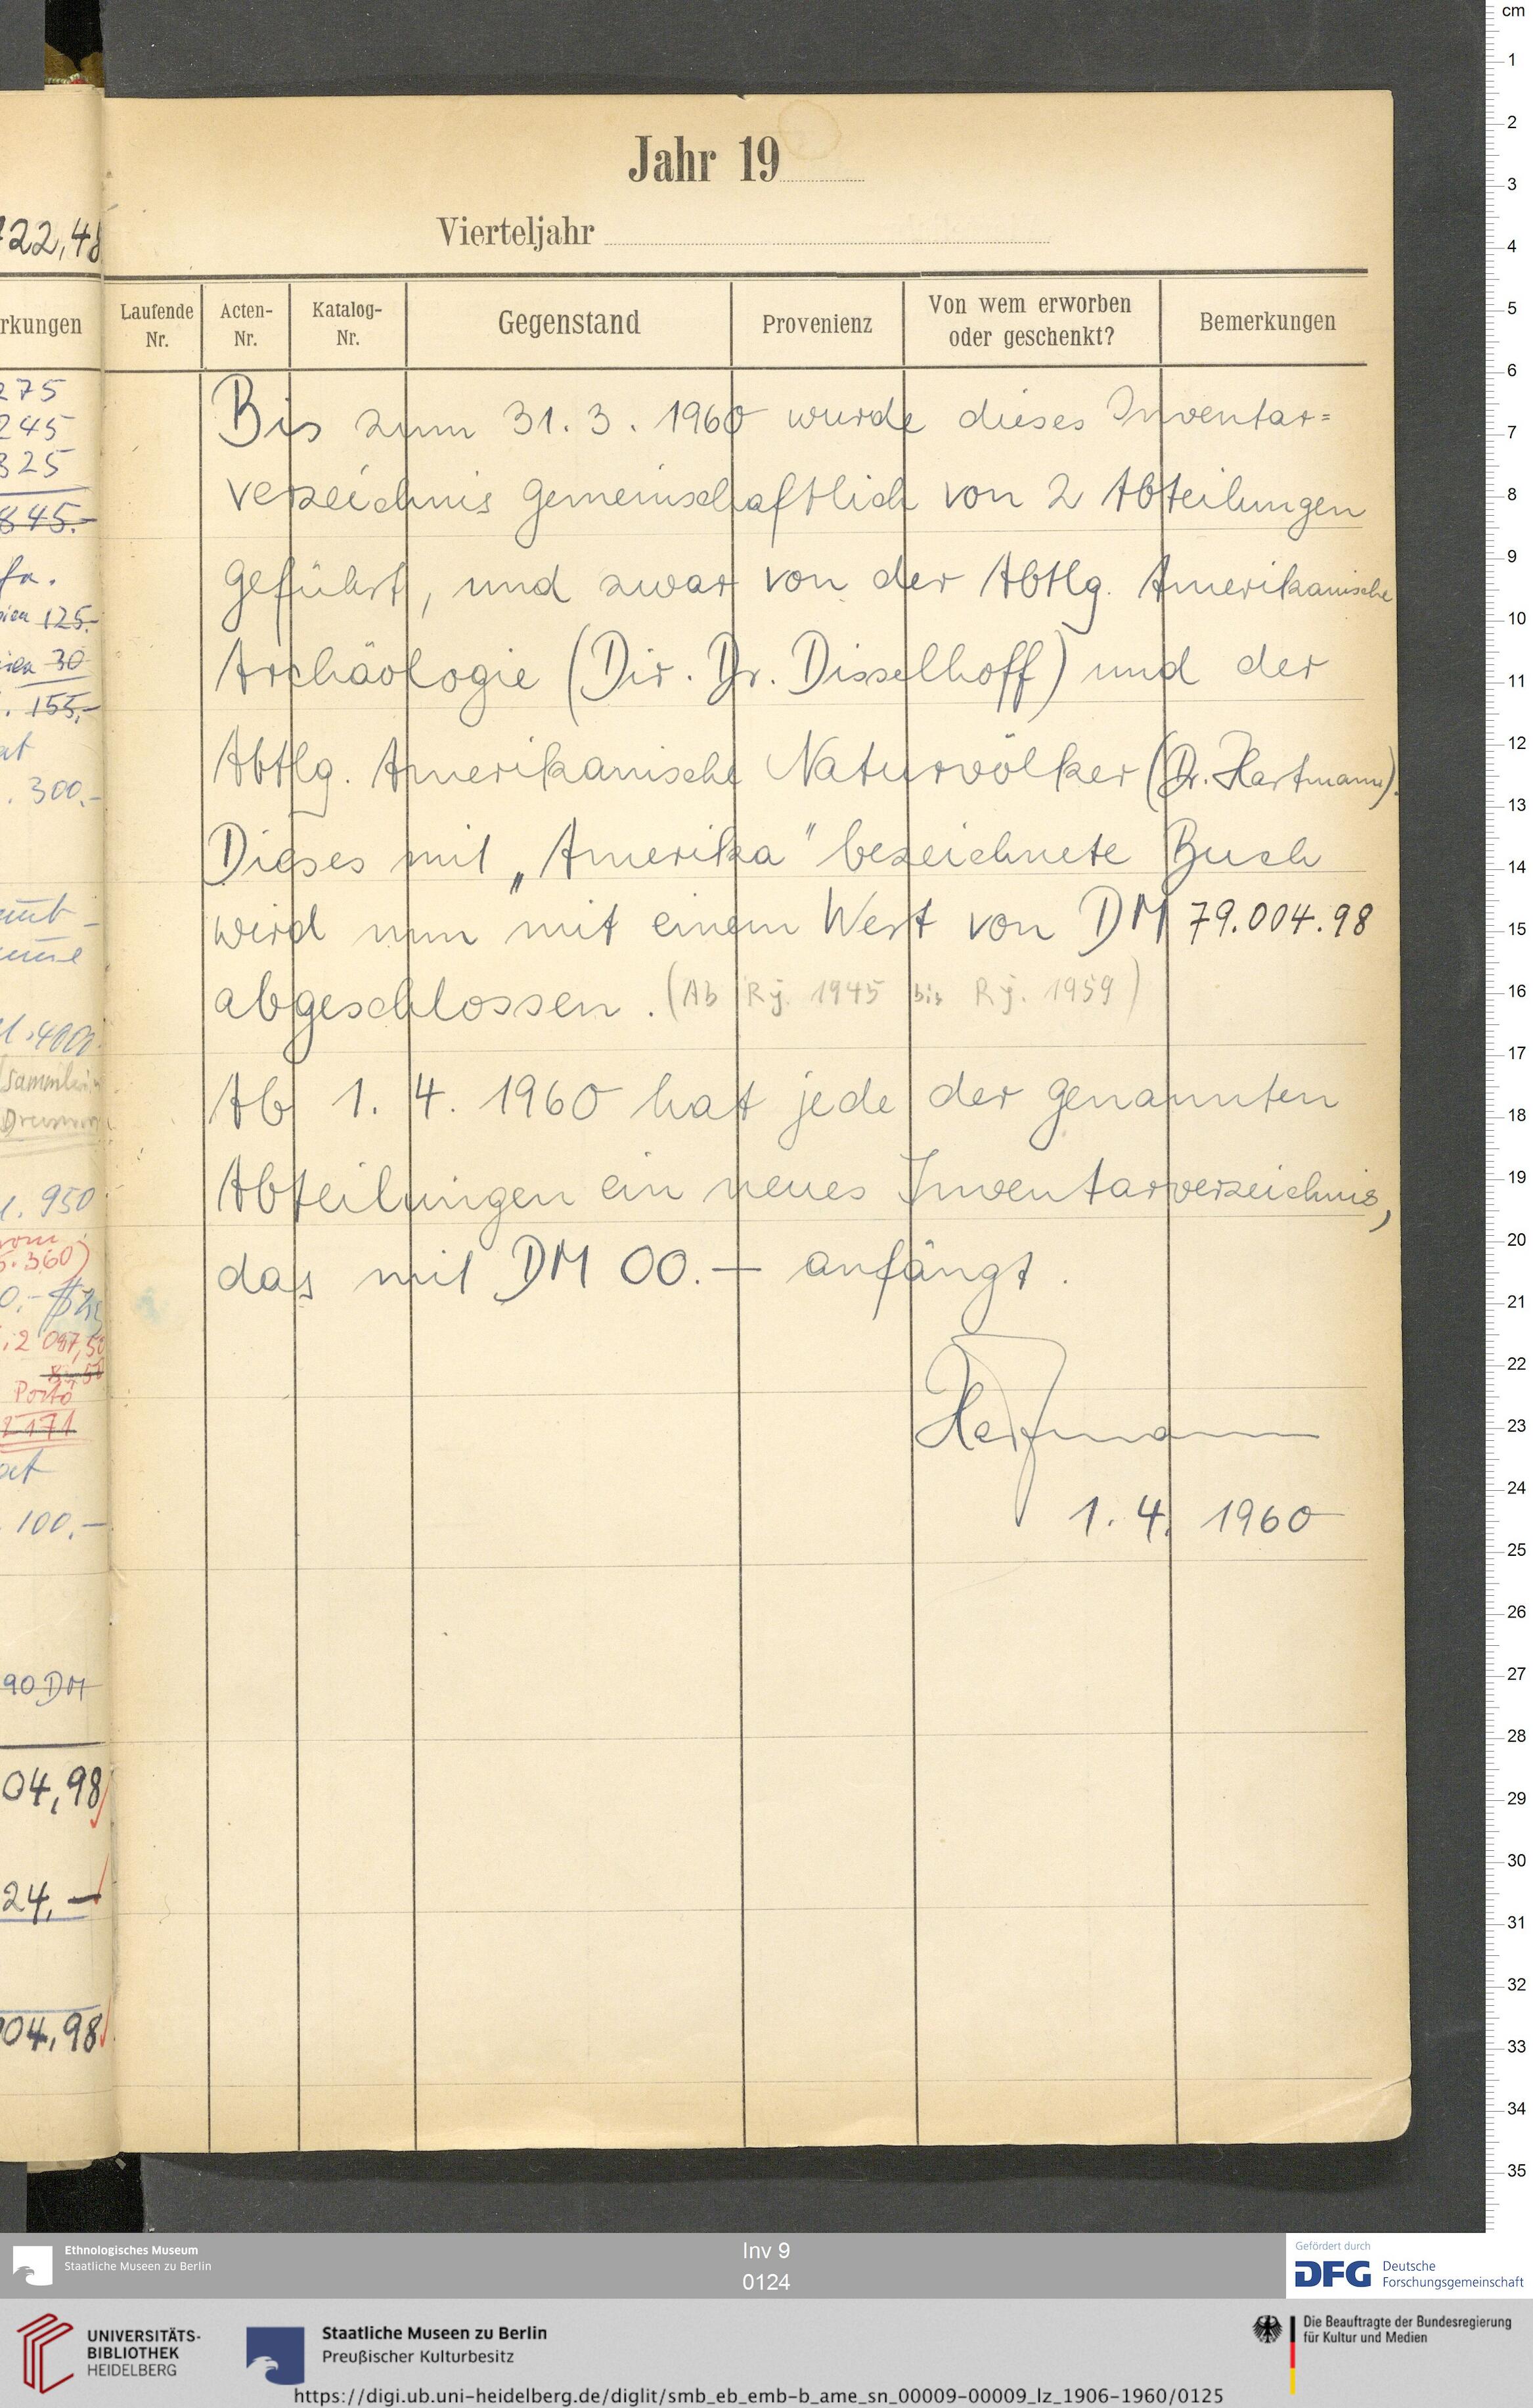 Jahr 19
Vierteljahr
Laufende Nr.
Acten-Nr.
Katalog-Nr.
Gegenstand
Provenienz
Von wem erworben oder geschenkt?
Bemerkungen
Bis zum 31. 3. 1960 wurde dieses Inventar=
verzeichnis gemeinschaftlich von 2 Abteilungen
geführt, und zwar von der Abtlg. Amerikanische
Archäologie (Dir. Dr. Disselhoff) und der
Abtlg. Amerikanische Naturvölker (Dr. Hartmann).
Dieses mit „Amerika" bezeichnete Buch
wird nun mit einem Wert von DM 79.004.98
abgeschlossen. (Ab Rj. 1945 bis Rj. 1959)
Ab 1. 4. 1960 hat jede der genannten
Abteilungen ein neues Inventarverzeichnis,
das mit DM 00.— anfängt.
Hartmann
1. 4. 1960
22,48
rkungen
275
245
325
845.-
fa.
125.-
30
155,-
300.-
950
360)
Porto
2171
100.-
90 DM
04,98
24,—
04,98
cm
1
2
3
4
5
6
7
8
9
10
11
12
13
14
15
16
17
18
19
20
21
22
23
24
25
26
27
28
29
30
31
32
33
34
35
Ethnologisches Museum
Staatliche Museen zu Berlin
Inv 9
0124
Gefördert durch
DFG Deutsche
Forschungsgemeinschaft
UNIVERSITÄTS-
BIBLIOTHEK
HEIDELBERG
Staatliche Museen zu Berlin
Preußischer Kulturbesitz
Die Beauftragte der Bundesregierung
für Kultur und Medien
https://digi.ub.uni-heidelberg.de/diglit/smb_eb_emb-b_ame_sn_00009-00009_lz_1906-1960/0125